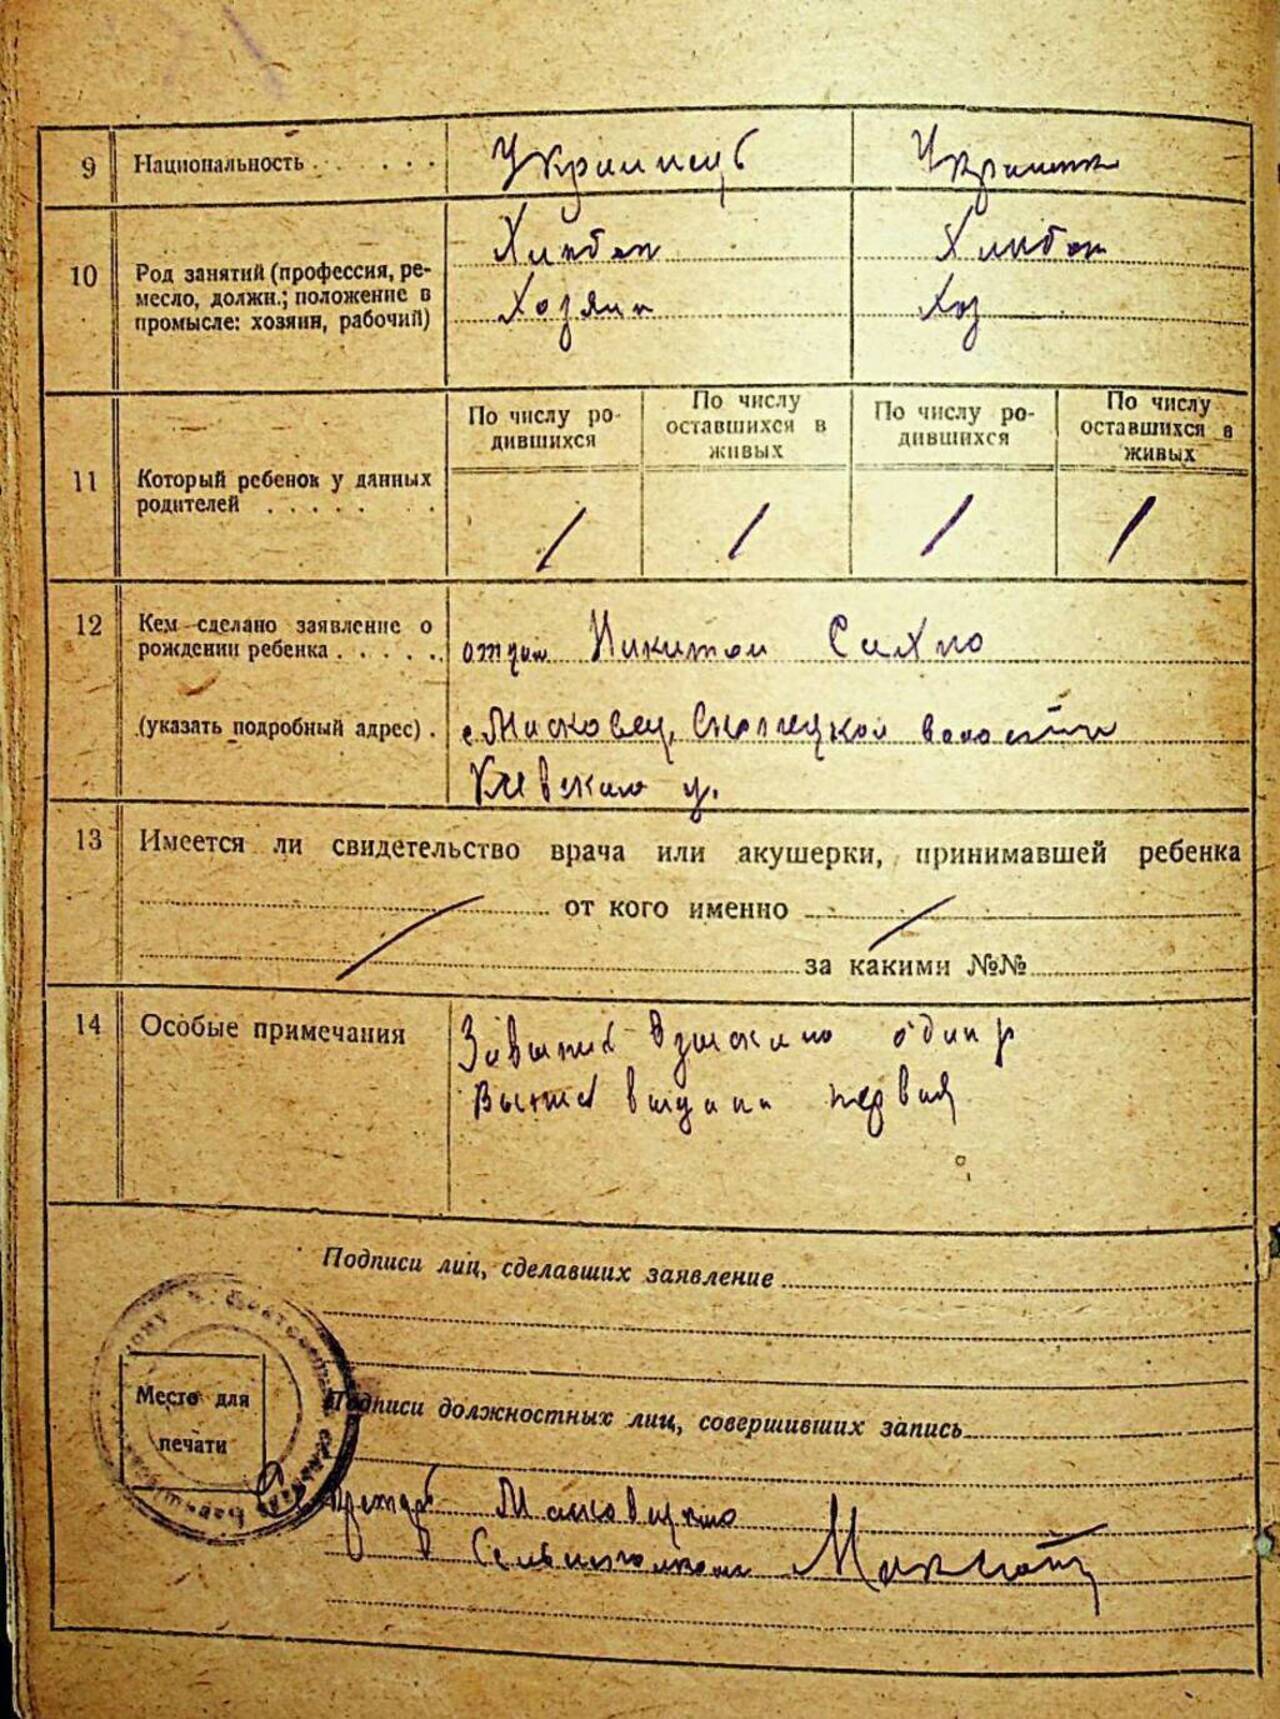 9 Национальность Украинець Украинка
10 Род занятий (профессия, ре-
месло, должн.; положение в
промысле: хозяин, рабочий)
Хлебоп Хлебоп
Хозяин Хоз
11 Который ребенок у данных
родителей
По числу ро-
дившихся
По числу
оставшихся в
живых
По числу ро-
дившихся
По числу
оставшихся в
живых
1 1 1 1
12 Кем сделано заявление о
рождении ребенка
отцом Никитой Сихно
(указать подробный адрес)
с. волости
Киевского у.
13 Имеется ли свидетельство врача или акушерки, принимавшей ребенка
от кого именно
за какими №№
14 Особые примечания
взыскано один р
выдана первая
Подписи лиц, сделавших заявление
Место для
печати
Подписи должностных лиц, совершивших запись
Секретарь
Сельисполкома